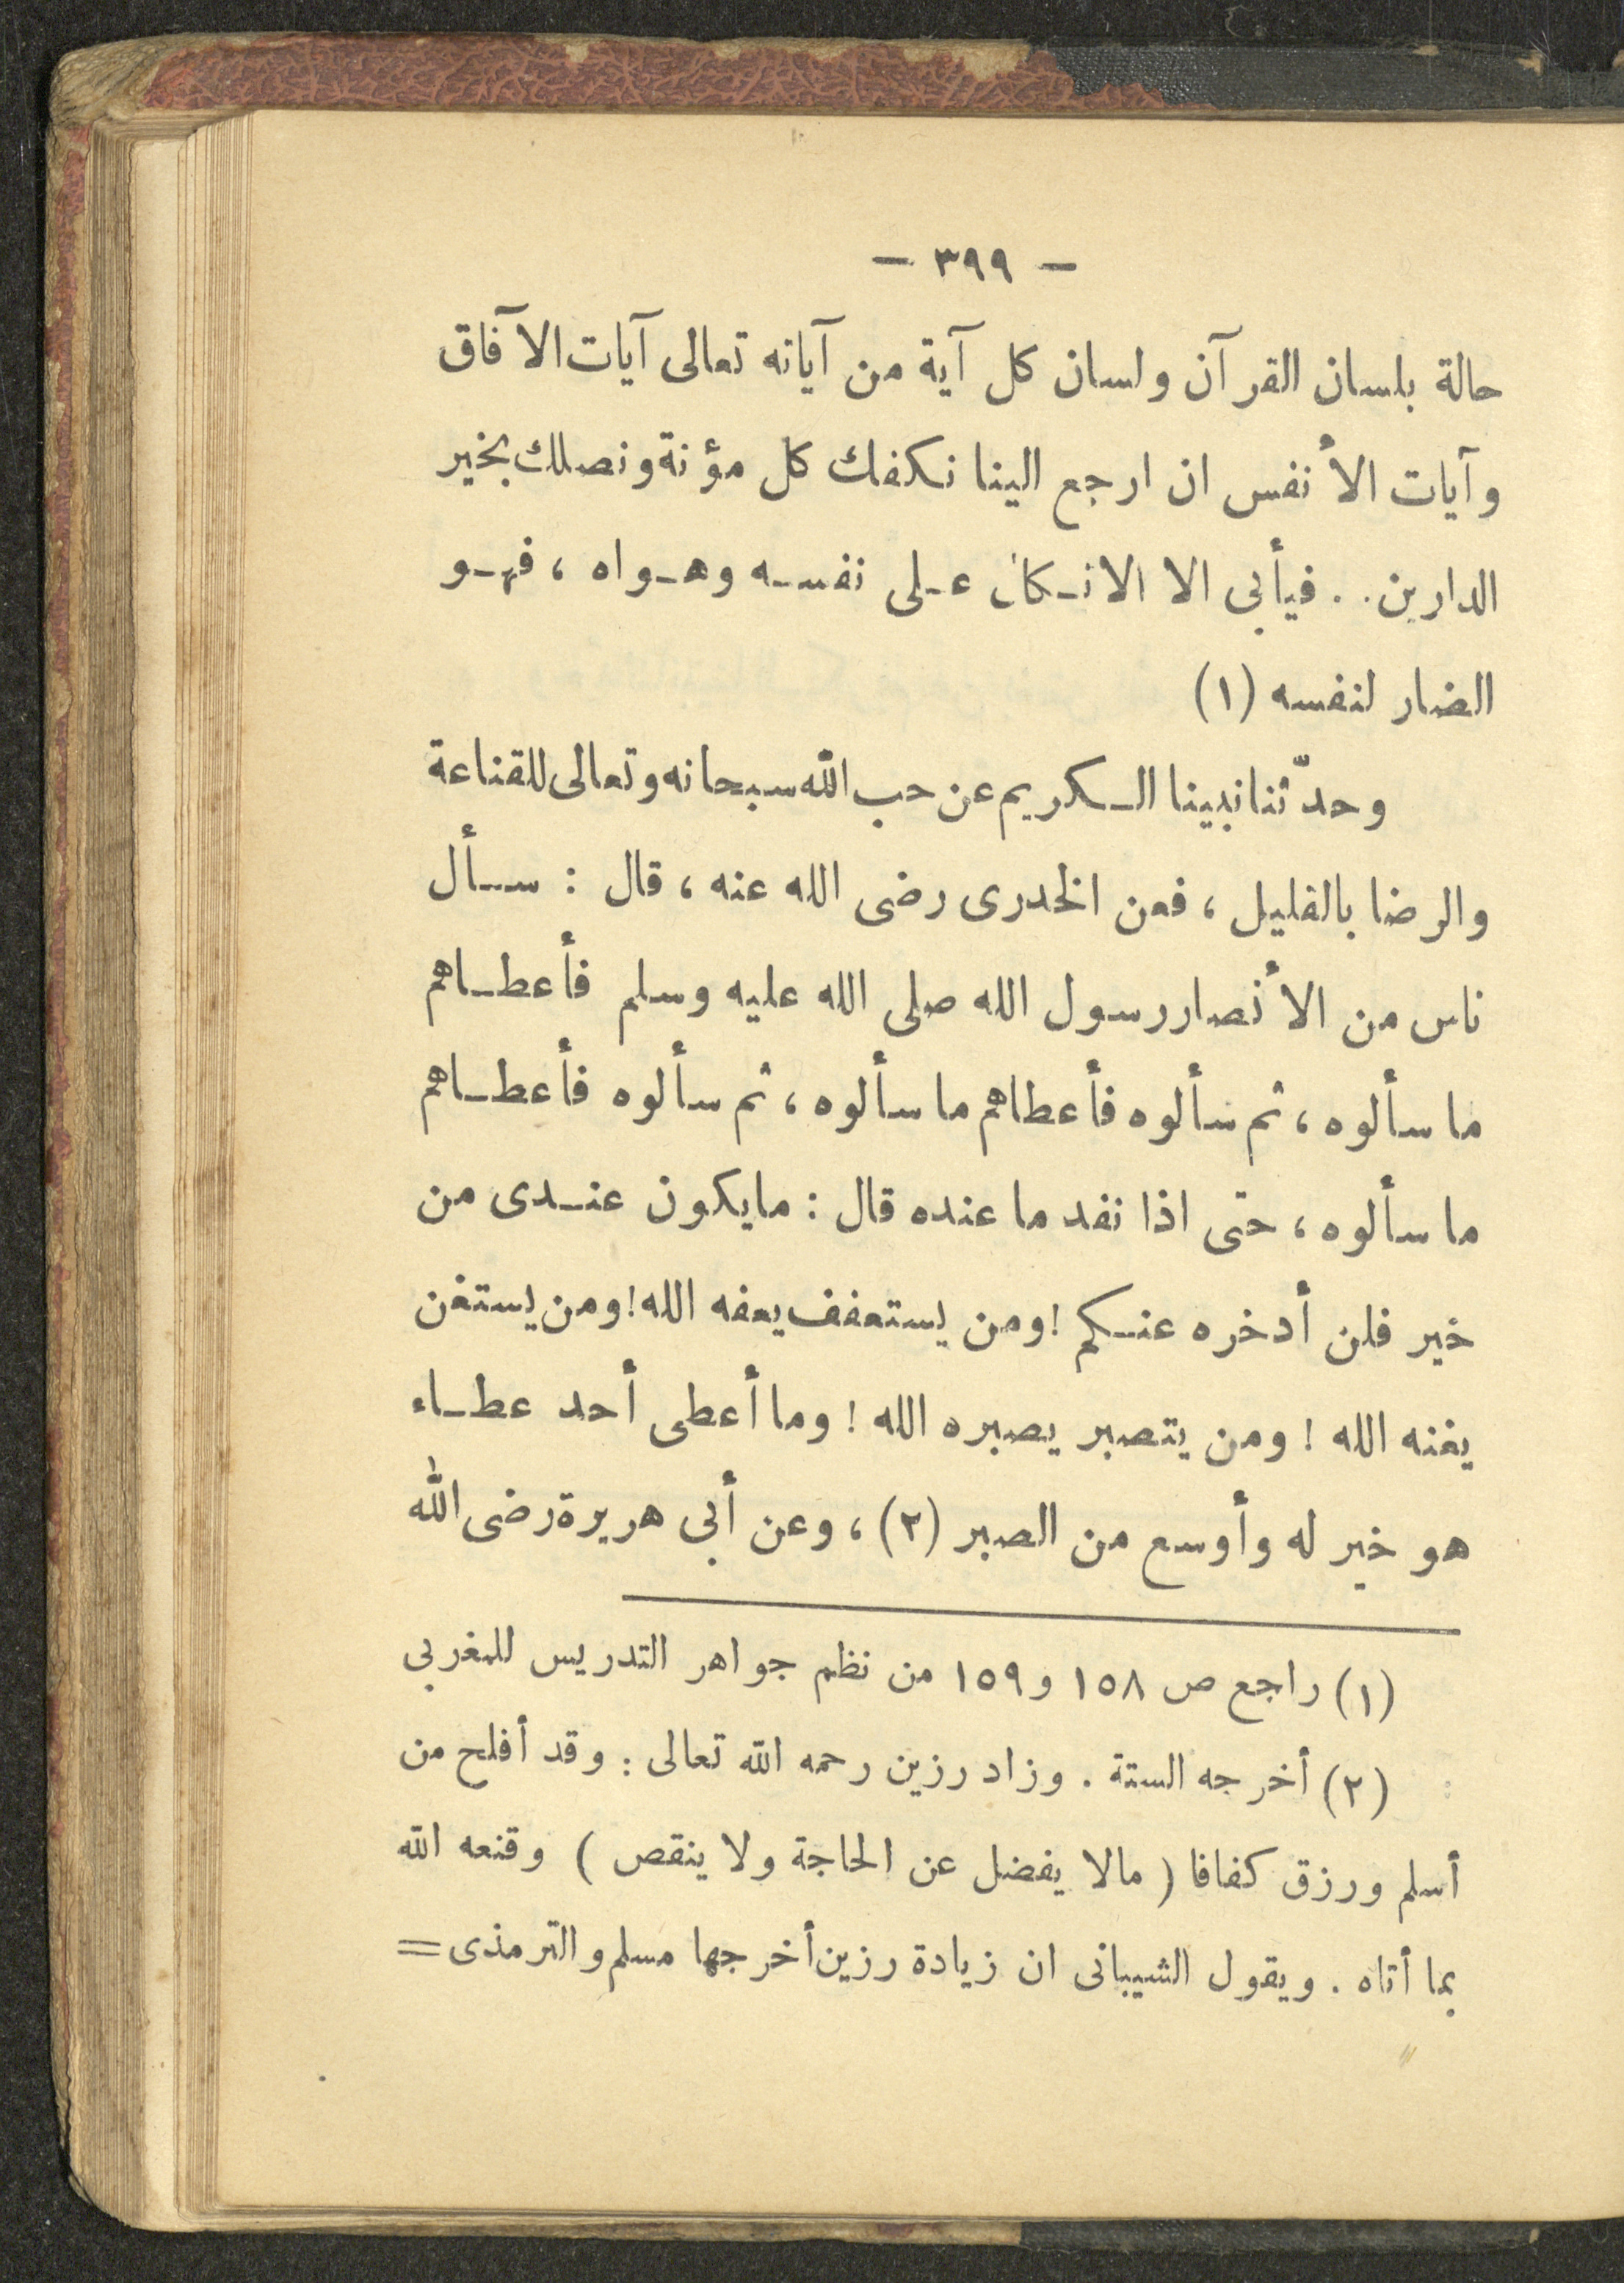 — ٣٩٩ —
حالة بلسان القرآن ولسان كل آية من آياته تعالى آيات الآفاق
وآيات الأنفس ان ارجع الينا نكفك كل مؤنة ونصلك بخير
الدارين . . فيأبى الا الاتكال على نفسه وهواه ، فهو
الضار لنفسه (١)
وحدّثنا نبينا الكريم عن حب الله سبحانه وتعالى للقناعة
والرضا بالقليل ، فعن الخدرى رضى الله عنه ، قال : سأل
ناس من الأنصار رسول الله صلى الله عليه وسلم فأعطاهم
ما سألوه ، ثم سألوه فأعطاهم ما سألوه ، ثم سألوه فأعطاهم
ما سألوه ، حتى اذا نفد ما عنده قال : مايكون عندى من
خير فلن أدخره عنكم ! ومن يستعفف يعفه الله ! ومن يستغن
يغنه الله ! ومن يتصبر يصبره الله ! وما أعطى أحد عطاء
هو خير له وأوسع من الصبر (٢) ، وعن أبى هريرة رضى الله
(١) راجع ص ١٥٨ و ١٥٩ من نظم جواهر التدريس للمغربى
(٢) أخرجه الستة . وزاد رزين رحمه الله تعالى : وقد أفلح من
أسلم ورزق كفافا ( مالا يفضل عن الحاجة ولا ينقص ) وقنعه الله
بما أتاه . ويقول الشيبانى ان زيادة رزين أخرجها مسلم والترمذى =